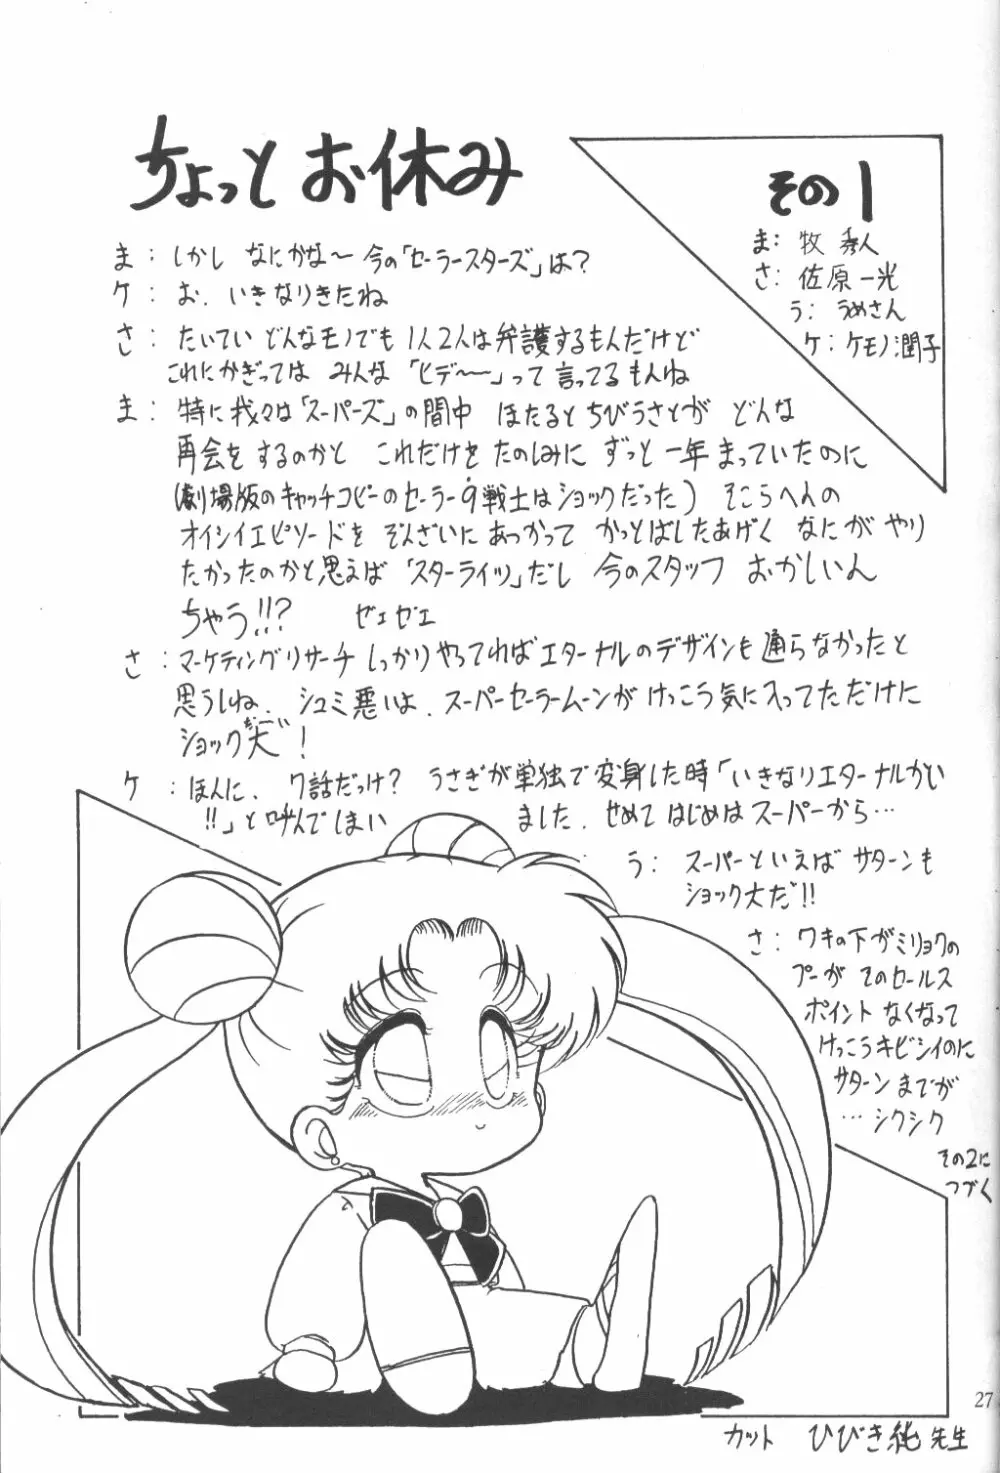 ちょっとお休み
その1
ま:牧 秀人
さ:佐原一光
う:うめさん
ケ:ケモノ潤子
ま:しかし なにかな〜 今の「セーラースターズ」は?
ケ:お、いきなりきたね
さ:たいてい どんなモノでも 1人2人は弁護するもんだけど
これにかぎっては みんな「ヒデ〜〜」って言ってるもんね
ま:特に我々は「スーパーズ」の間中 ほたるとちびうさとが どんな
再会をするのかと これだけをたのしみに ずっと一年まっていたのに
(劇場版のキャッチコピーのセーラー9戦士はショックだった) そこらへんの
オイシイエピソードを ぞんざいにあつかって かっとばしたあげく なにがやり
たかったのかと思えば「スターライツ」だし 今のスタッフ おかしいん
ちゃう!!? ゼェゼェ
さ:マーケティングリサーチしっかりやってればエターナルのデザインも通らなかったと
思うしね、シュミ悪いよ、スーパーセーラームーンがけっこう気に入ってただけに
ショック大!
ケ:ほんに、7話だっけ? うさぎが単独で変身した時「いきなりエターナルかい
!!」と叫んでしまい ました、せめてはじめはスーパーから…
う:スーパーといえば サターンも
ショック大だ!!
さ:ワキの下がミリョクの
プーが そのセールス
ポイント なくなって
けっこうキビシイのに
サターンまでが
…シクシク
その2に
つづく
27
カット ひびき純先生